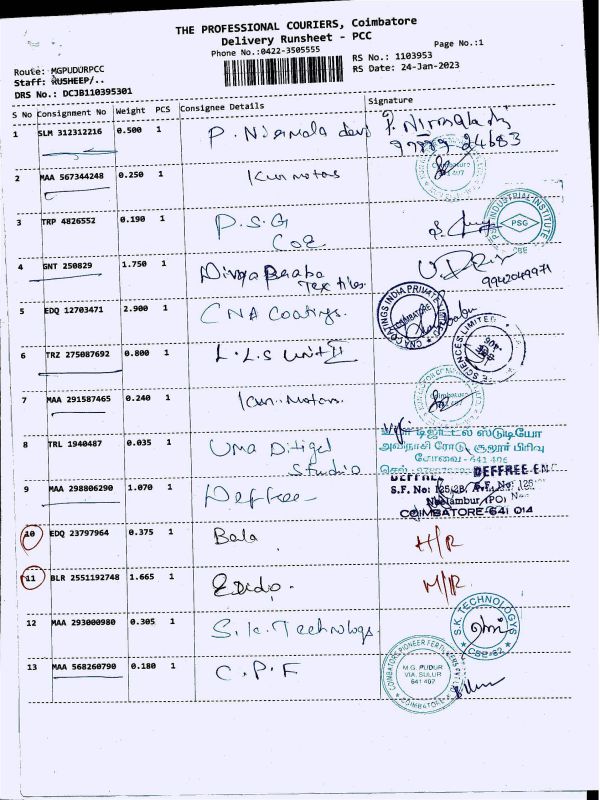 THE PROFESSIONAL COURIERS, Coimbatore
Delivery Runsheet - PCC
Phone No.:0422-3505555
Page No.:1
Route: MGPUDURPCC
RS No.: 1103953
Staff: RUSHEEP/..
RS Date: 24-Jan-2023
DRS No.: DCJB110395301
S No Consignment No Weight PCS Consignee Details Signature
1 SLM 312312216 0.500 1 P. Nirmala devi P. Nirmala devi
24683
2 MAA 567344248 0.250 1 Kun motors
641 407
3 TRP 4826552 0.190 1 P.S.G
COE
PSG INDUSTRIAL INSTITUTE
PSG
CBE
4 GNT 250829 1.750 1 Divya Baaba
Tex tiles
9942049971
5 EDQ 12703471 2.900 1 CNA Coatings.
CNA COATINGS INDIA PRIVATE LIMITED
COIMBATORE
6 TRZ 275087692 0.800 1 L.L.S Unit II
SCIENCES LIMITED
7 MAA 291587465 0.240 1 Kun. Motors
Coimbatore
641 407
8 TRL 1940487 0.035 1 Uma Ditigel
Studio
டிஜிட்டல் ஸ்டுடியோ
அவிநாசி ரோடு, சூலூர் பிரிவு
கோவை - 641 406
9 MAA 298806290 1.070 1 Deffree
DEFFREE ENG
S.F. No: 125/2B
Neelambur (PO)
COIMBATORE-641 014
10 EDQ 23797964 0.375 1 Bala H/R
11 BLR 2551192748 1.665 1 M/R
12 MAA 293000980 0.305 1 S.K. Technologs.
S.K. TECHNOLOGYS
CBE-62
13 MAA 568260790 0.180 1 C.P.F
COIMBATORE PIONEER FERTILIZERS
M.G. PUDUR
VIA. SULUR
641 407
COIMBATORE